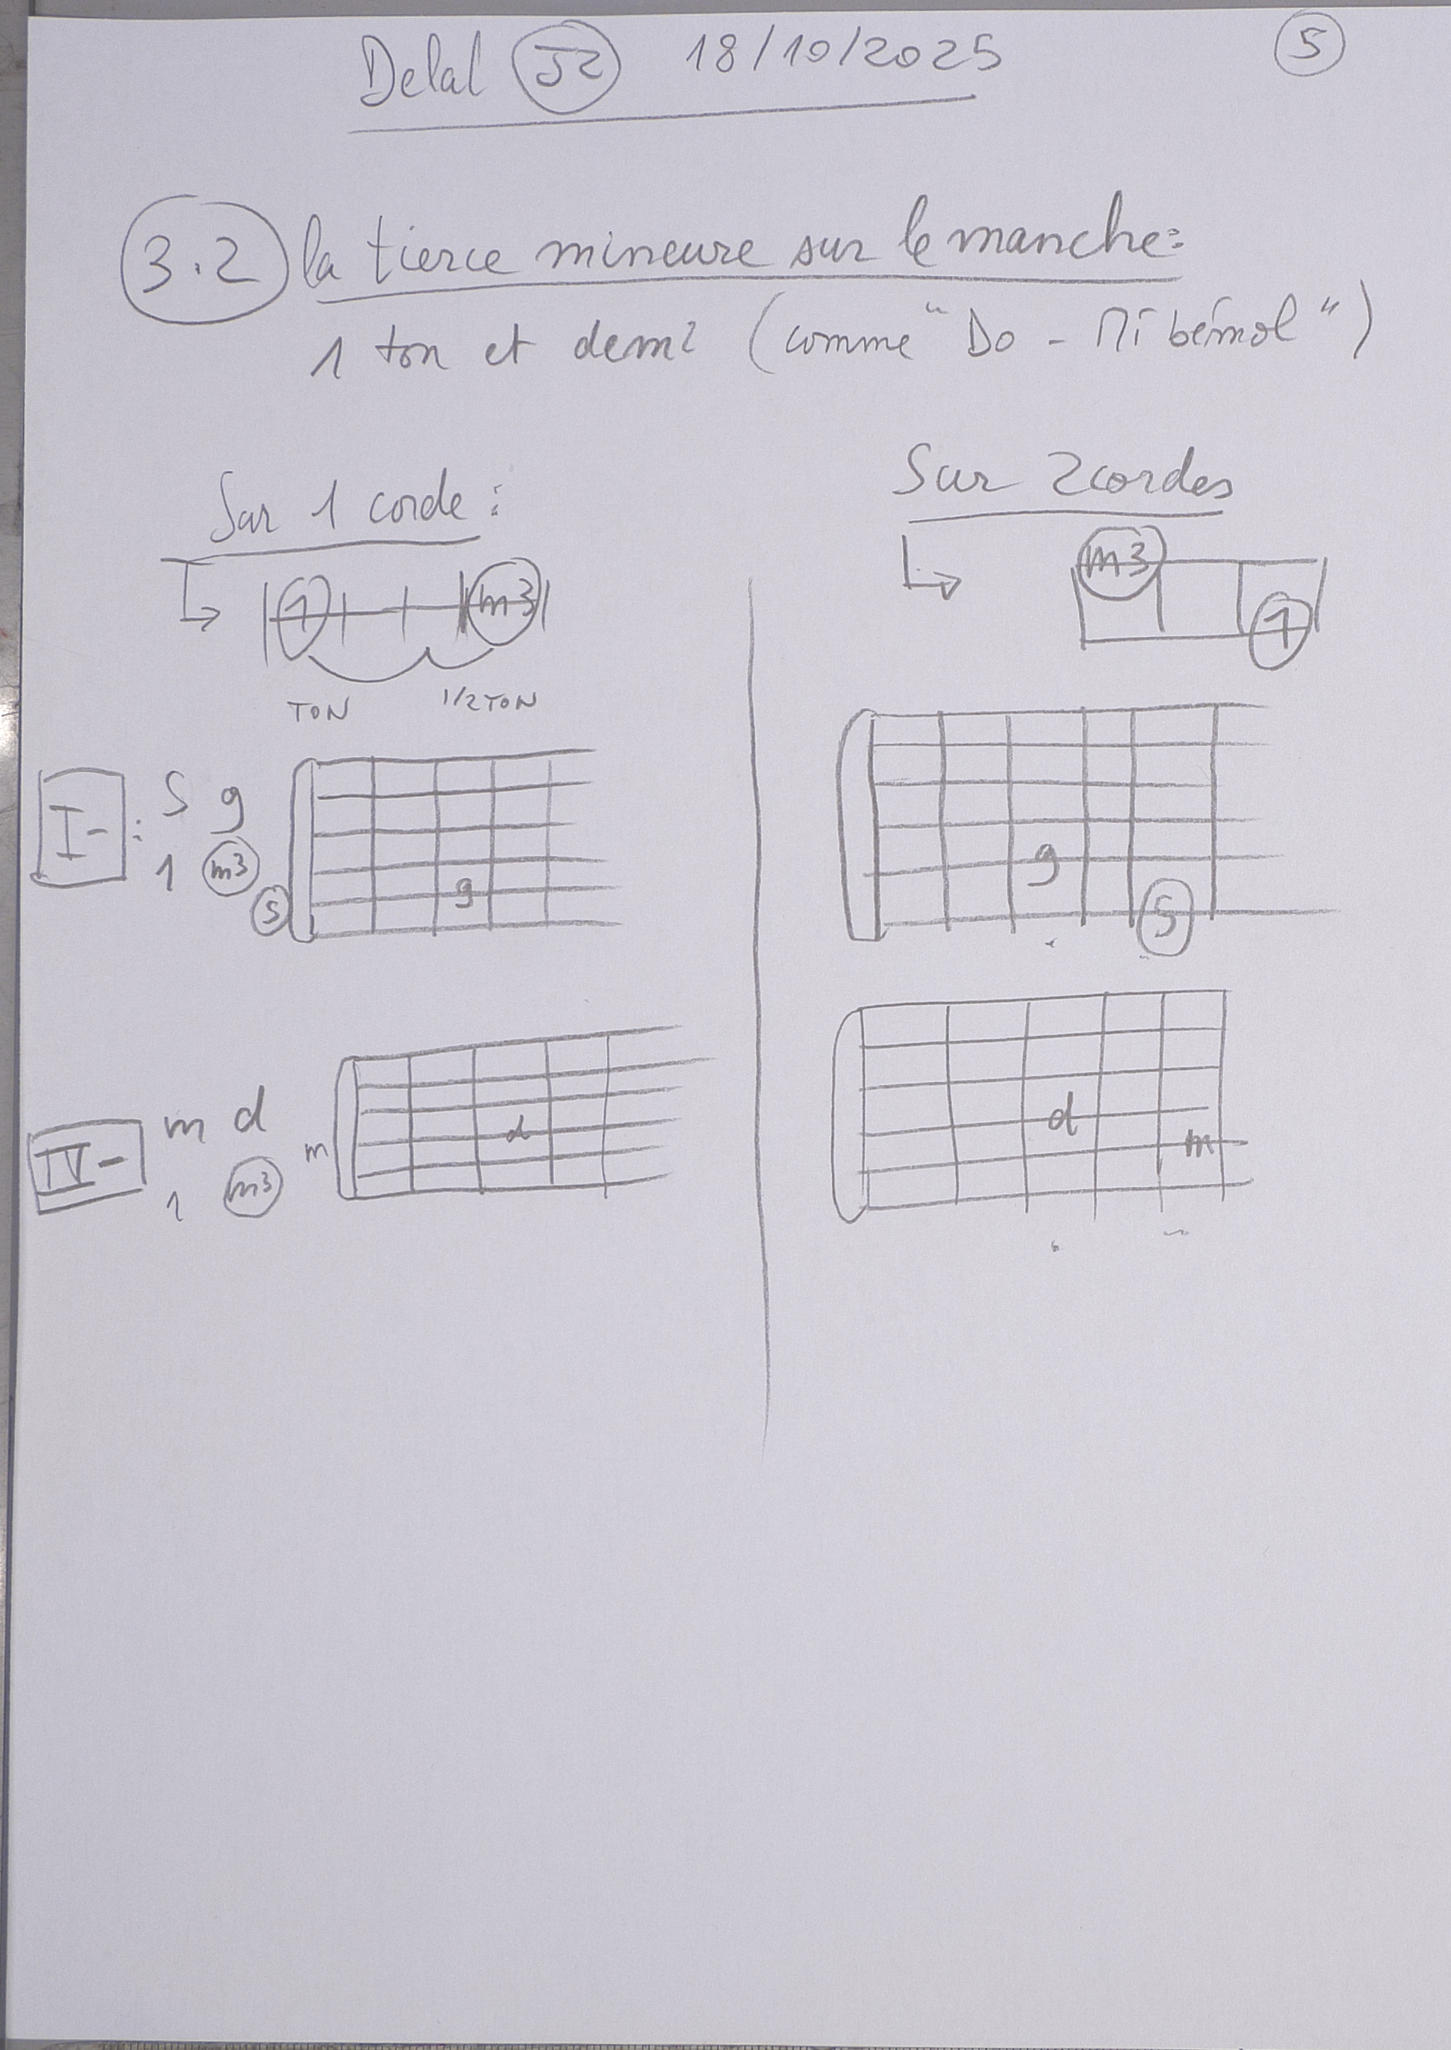 Delal 52 18/10/2025 5
3.2 la tierce mineure sur le manche :
1 ton et demi (comme "Do - Mi bémol")
Sur 1 corde :
1 m3
TON 1/2 TON
Sur 2 cordes
m3
1
I- : S g
1 m3
S g
g
S
IV- m d
1 m3
m d
d
m